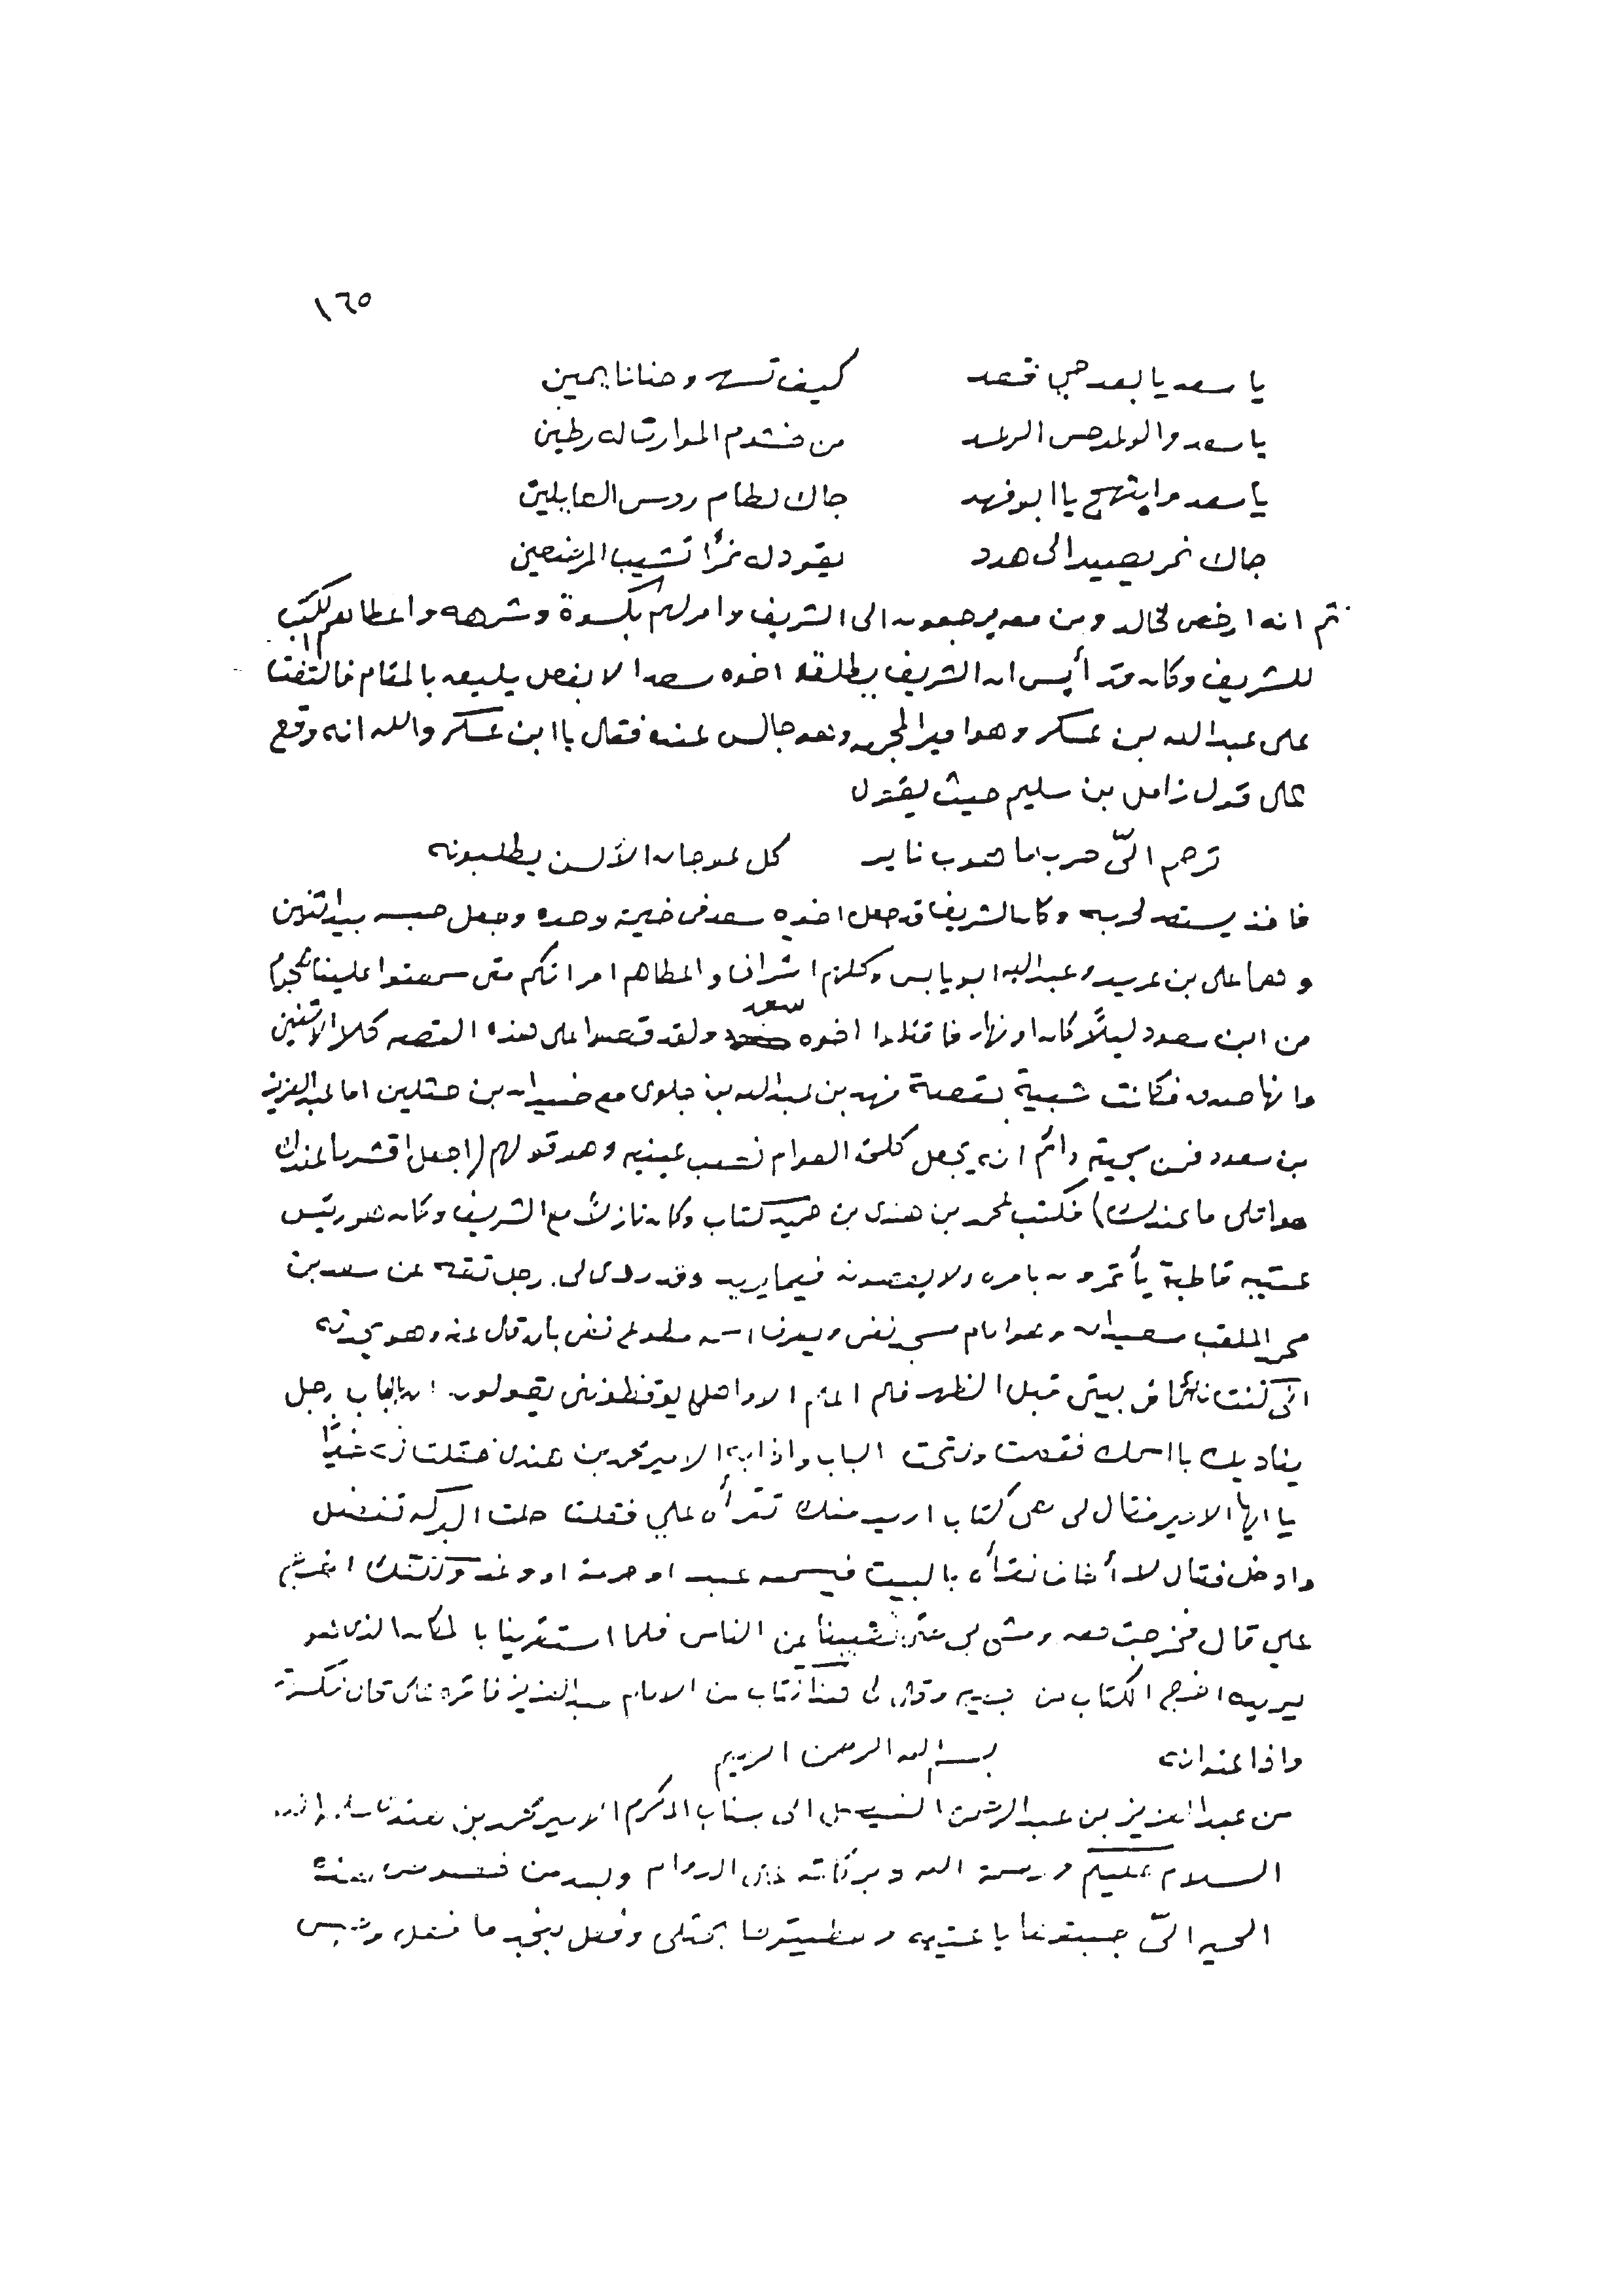 ١٦٥
يا سعد يا بعد حي قعد كيف تسهر وحنانا يمين
يا سعد والولد حس الرعد من خشوم الموارت له رطين
يا سعد وابتهج يا ابو فهد جاك لطام روس العايلين
جاك نمر يصيد الى هدد يقود له نمرًا تشيب المرضعين
ثم انه ارخص لخالد ومن معه يرجعون الى الشريف وامر لهم بكسوة وشرهه واعطاهم الكتب
للشريف وكان قد أيس ان الشريف يطلق اخوه سعد الا بفعل يليعه بالمقام فالتفت
على عبدالله بن عسكر وهو امير المجمعه وهو جالس عنده فقال يا ابن عسكر والله انه وقع
على قول زامل بن سليم حيث يقول
ترحم الىّ حرب ما هوب نايد كل عوجان الألسن يطلبونه
فاخذ يستعد لحربه وكان الشريف قد جعل اخوه سعد في خيمة وحده وجعل حبسه بيد اثنين
وهما علي بن عريد وعبدالله ابو يابس وكلهم اشراف واعطاهم امر انكم متى سمعتوا علينا هجوم
من ابن سعود ليلًا كان او نهار فاقتلوا اخوه سعد ولقد قعدوا على هذه القصه كلا الاثنين
وانها صدق فكانت شبيهة بقصة فهد بن عبدالله بن جلوى مع ضيدان بن حثلين اما عبدالعزيز
بن سعود فمن سجيته دائم انه يجعل كلمة العوام نصب عينيه وهو قولهم (اجعل اقشر ما عندك
هو اقلى ما عندك) فكتب لمحمد بن هندي بن حميد كتاب وكان نازلًا مع الشريف وكان هو رئيس
عتيبه قاطبة يأتمرون بامره ولا يعصونه فيما يريد وقد روى لي رجل ثقه عن سعد بن
محمد الملقب سعيدان وهو امام مسجد نفي ويعرف اسمه مطوع نفي بأن قال عنه وهو يحدثه
اني كنت نائمًا في بيتي قبل الظهر فلم اعلم الا واهلي يوقظونني يقولون ان بالباب رجل
يناديك باسمك فقمت وفتحت الباب واذا به الامير محمد بن هندي فقلت
يا ايها الامير فقال لي معي كتاب اريد منك تقرأه علي فقلت حلت البركه تفضل
وادخل فقال لا أخاف نقرأه بالبيت فيسمعه عبد او حرمة او وغد ولكنك اخرج
علي قال فخرجت معه ومشى بي حتى تغيبنا عن الناس فلما استقرينا بالمكان الذي هو
يريده اخرج الكتاب من جيبه وقال لي هذا كتاب من الامام عبدالعزيز فاقره علي قال
واذا عنوانه بسم الله الرحمن الرحيم
من عبدالعزيز بن عبدالرحمن الفيصل الى جناب المكرم الامير محمد بن هندي سلمه الله
السلام عليكم ورحمة الله وبركاته على الدوام وبعد من
الىّ جبتوها يا عتيبه ما فعل